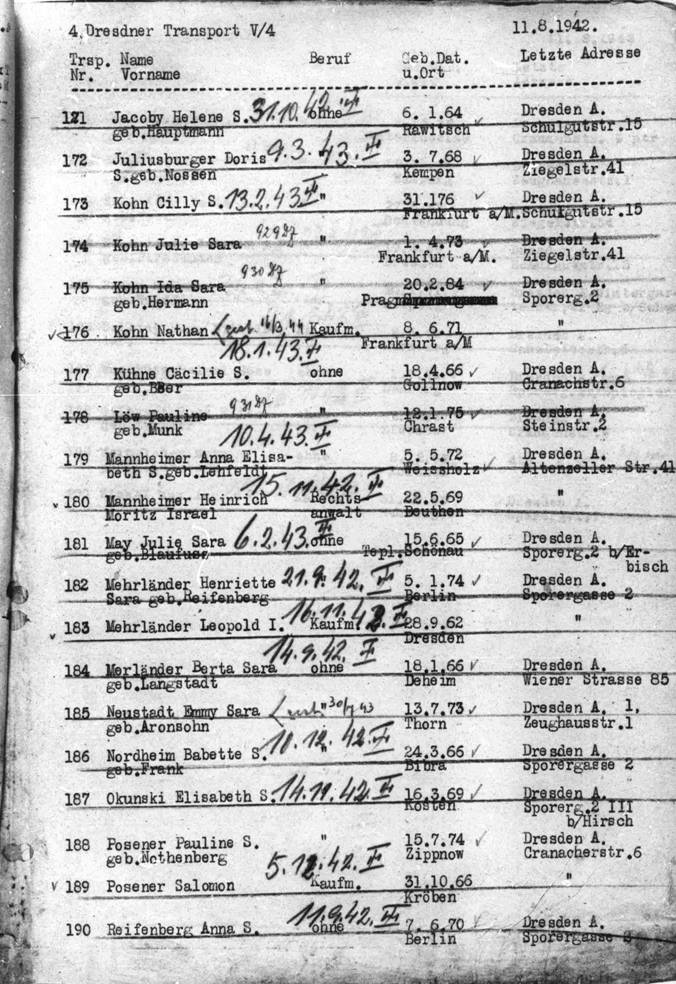 4. Dresdner Transport V/4 11.8.1942.
Trsp. Name Beruf Geb.Dat. Letzte Adresse
Nr. Vorname u.Ort
121 Jacoby Helene S. 31.10.42 ohne 6. 1.64 Dresden A.
geb.Hauptmann Rawitsch Schulgutstr.15
172 Juliusburger Doris 9.3.43. 3. 7.68 Dresden A.
S.geb.Nossen Kempen Ziegelstr.41
173 Kohn Cilly S. 13.2.43 " 31.176 Dresden A.
Frankfurt a/M. Schulgutstr.15
174 Kohn Julie Sara " 1. 4.73 Dresden A.
Frankfurt a/M. Ziegelstr.41
175 Kohn Ida Sara " 20.2.84 Dresden A.
geb.Hermann Prag Sporerg.2
176 Kohn Nathan gest. 16/3.44 Kaufm. 8. 6.71 "
18.1.43. Frankfurt a/M
177 Kühne Cäcilie S. ohne 18.4.66 Dresden A.
Gollnow Cranachstr.6
178 Löw Pauline " 12.1.75 Dresden A.
geb.Munk 10.4.43. Chrast Steinstr.2
179 Mannheimer Anna Elisa- " 5. 5.72 Dresden A.
beth S.geb.Lehfeldt Weissholz Altenzeller Str.41
15.11.42.
180 Mannheimer Heinrich Rechts 22.5.69 "
Moritz Israel anwalt Beuthen
181 May Julie Sara 6.2.43. ohne 15.6.65 Dresden A.
geb.Blaufuss Tepl.Schönau Sporerg.2 b/Er-
bisch
182 Mehrländer Henriette 21.9.42. 5. 1.74 Dresden A.
Sara geb.Reifenberg Berlin Sporergasse 2
183 Mehrländer Leopold I. 16.11.42. Kaufm. 28.9.62 "
Dresden
14.9.42.
184 Merländer Berta Sara ohne 18.1.66 Dresden A.
geb.Langstadt Deheim Wiener Strasse 85
185 Neustadt Emmy Sara " 13.7.73 Dresden A. 1,
geb.Aronsohn Thorn Zeughausstr.1
186 Nordheim Babette S. 10.12.42. " 24.3.66 Dresden A.
geb.Frank Bibra Sporergasse 2
187 Okunski Elisabeth S. 14.11.42. 16.3.69 Dresden A.
Kosten Sporerg.2 III
b/Hirsch
188 Posener Pauline S. " 15.7.74 Dresden A.
geb.Nothenberg Zippnow Cranacherstr.6
5.12.42.
189 Posener Salomon Kaufm. 31.10.66 "
Kröben
190 Reifenberg Anna S. 11.9.42. ohne 7. 6.70 Dresden A.
Berlin Sporergasse 2